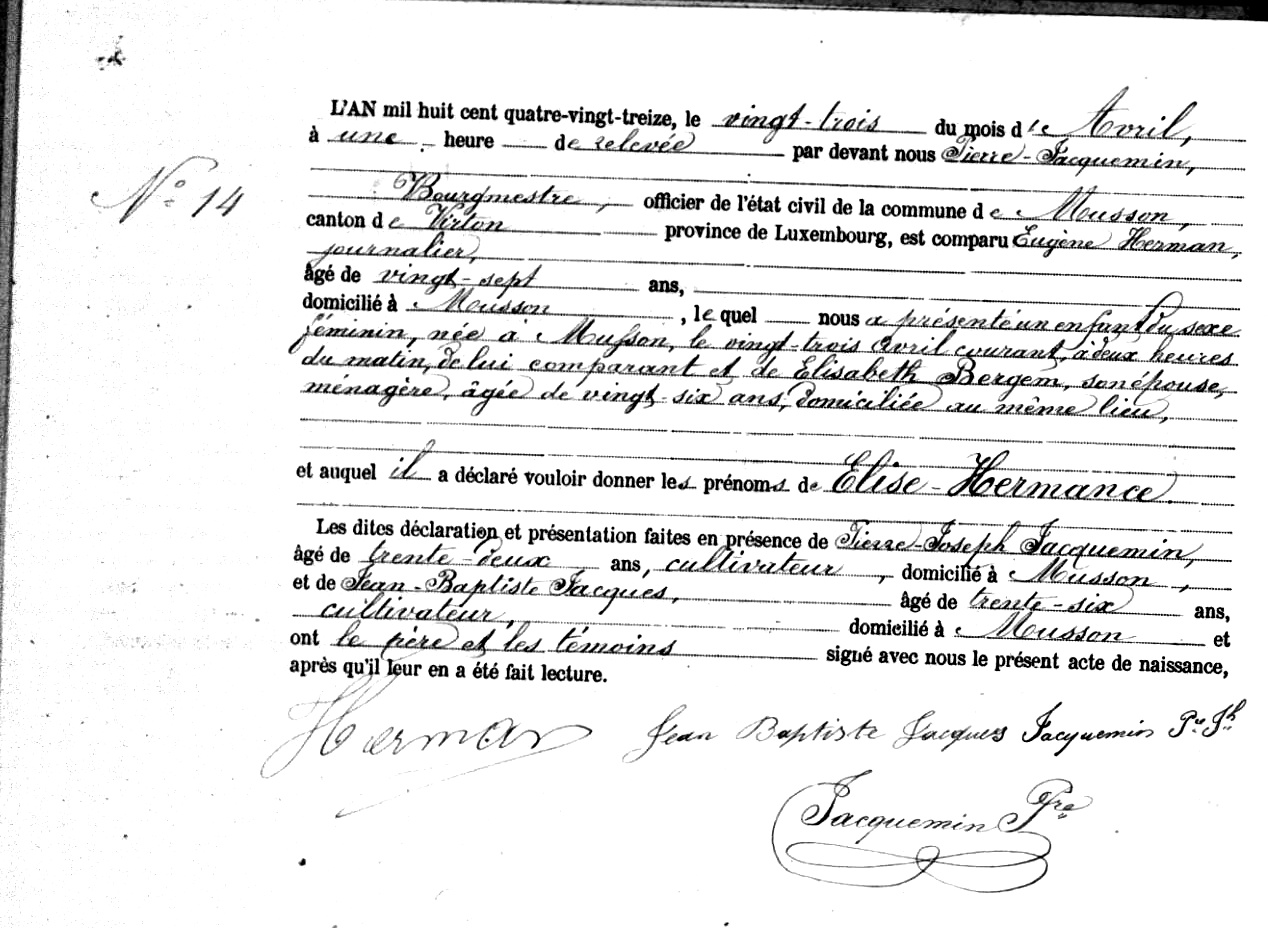 L'AN mil huit cent quatre-vingt-treize, le vingt-trois du mois de Avril,
à une heure de relevée par devant nous Pierre-Jacquemin,
N° 14
Bourgmestre, officier de l'état civil de la commune de Musson,
canton de Virton province de Luxembourg, est comparu Eugène Herman,
journalier,
âgé de vingt-sept ans,
domicilié à Musson, lequel nous a présenté un enfant du sexe
féminin, née à Musson, le vingt-trois avril courant, à deux heures
du matin, de lui comparant et de Elisabeth Bergem, son épouse,
ménagère, âgée de vingt-six ans, domiciliée au même lieu,
et auquel il a déclaré vouloir donner les prénoms de Elise-Hermance.
Les dites déclaration et présentation faites en présence de Pierre-Joseph Jacquemin,
âgé de trente-deux ans, cultivateur, domicilié à Musson,
et de Jean-Baptiste Jacques, âgé de trente-six ans,
cultivateur, domicilié à Musson et
ont le père et les témoins signé avec nous le présent acte de naissance,
après qu'il leur en a été fait lecture.
Herman Jean Baptiste Jacques Jacquemin Pre Jph
Jacquemin Pre